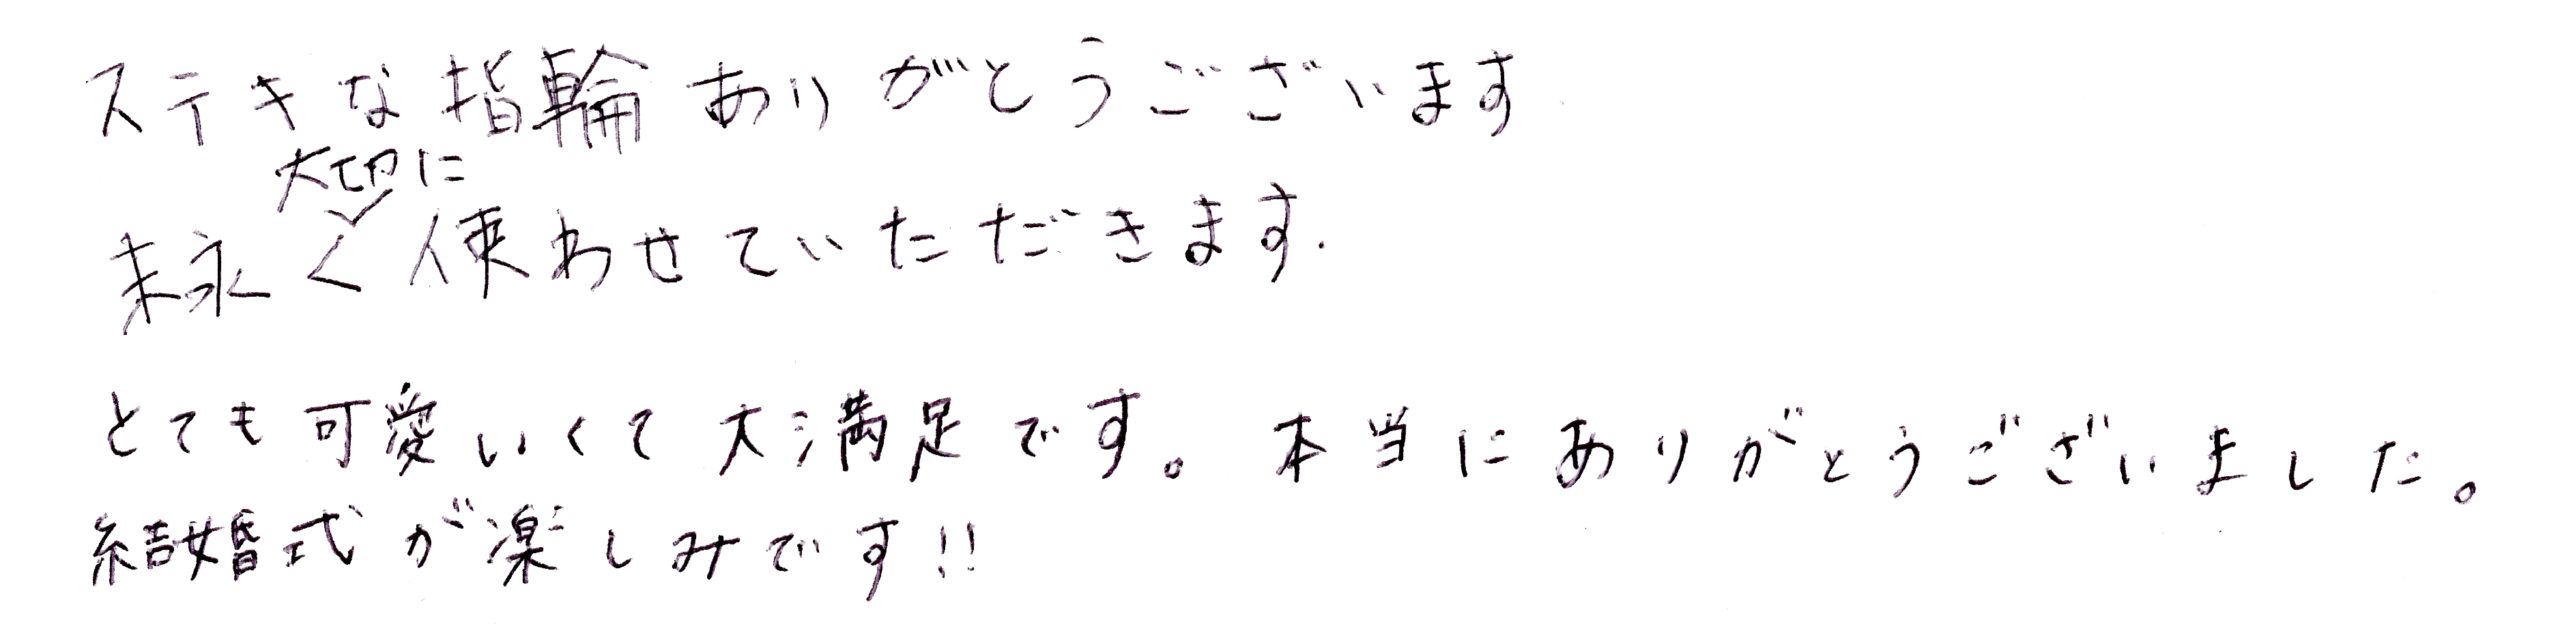 ステキな指輪ありがとうございます
大切に
末永く使わせていただきます.
とても可愛いくて大満足です。本当にありがとうございました。
結婚式が楽しみです!!